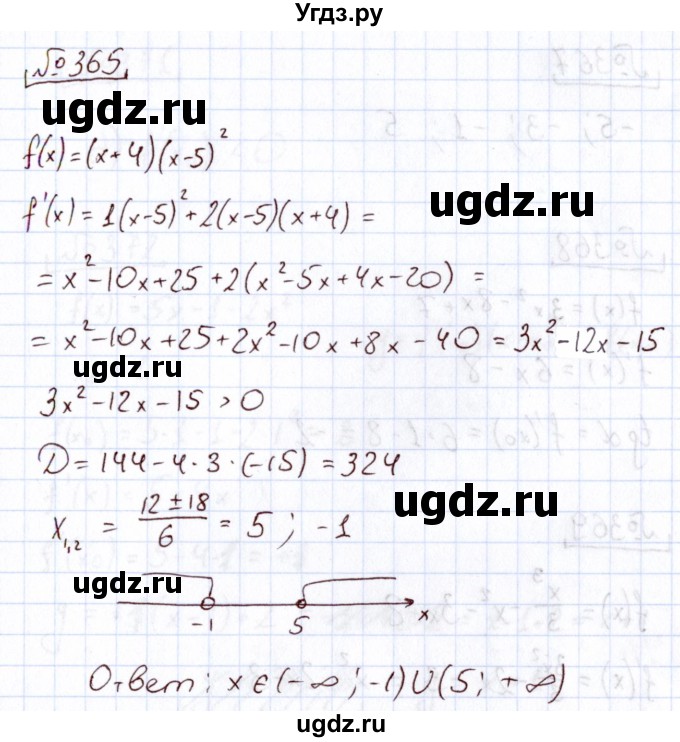 Угдз.ру
№365
ugdz.ru
f(x)=(x+4)(x-5)²
ugdz.ru
f'(x)=1(x-5)²+2(x-5)(x+4)=
=x²-10x+25+2(x²-5x+4x-20)=
=x²-10x+25+2x²-10x+8x-40=3x²-12x-15
ugdz.ru
3x²-12x-15>0
D=144-4·3·(-15)=324
ugdz.ru
x₁,₂ = (12±18)/6 = 5; -1
ugdz.ru
-1 5 x
Ответ: x∈(-∞;-1)∪(5;+∞)
ugdz.ru